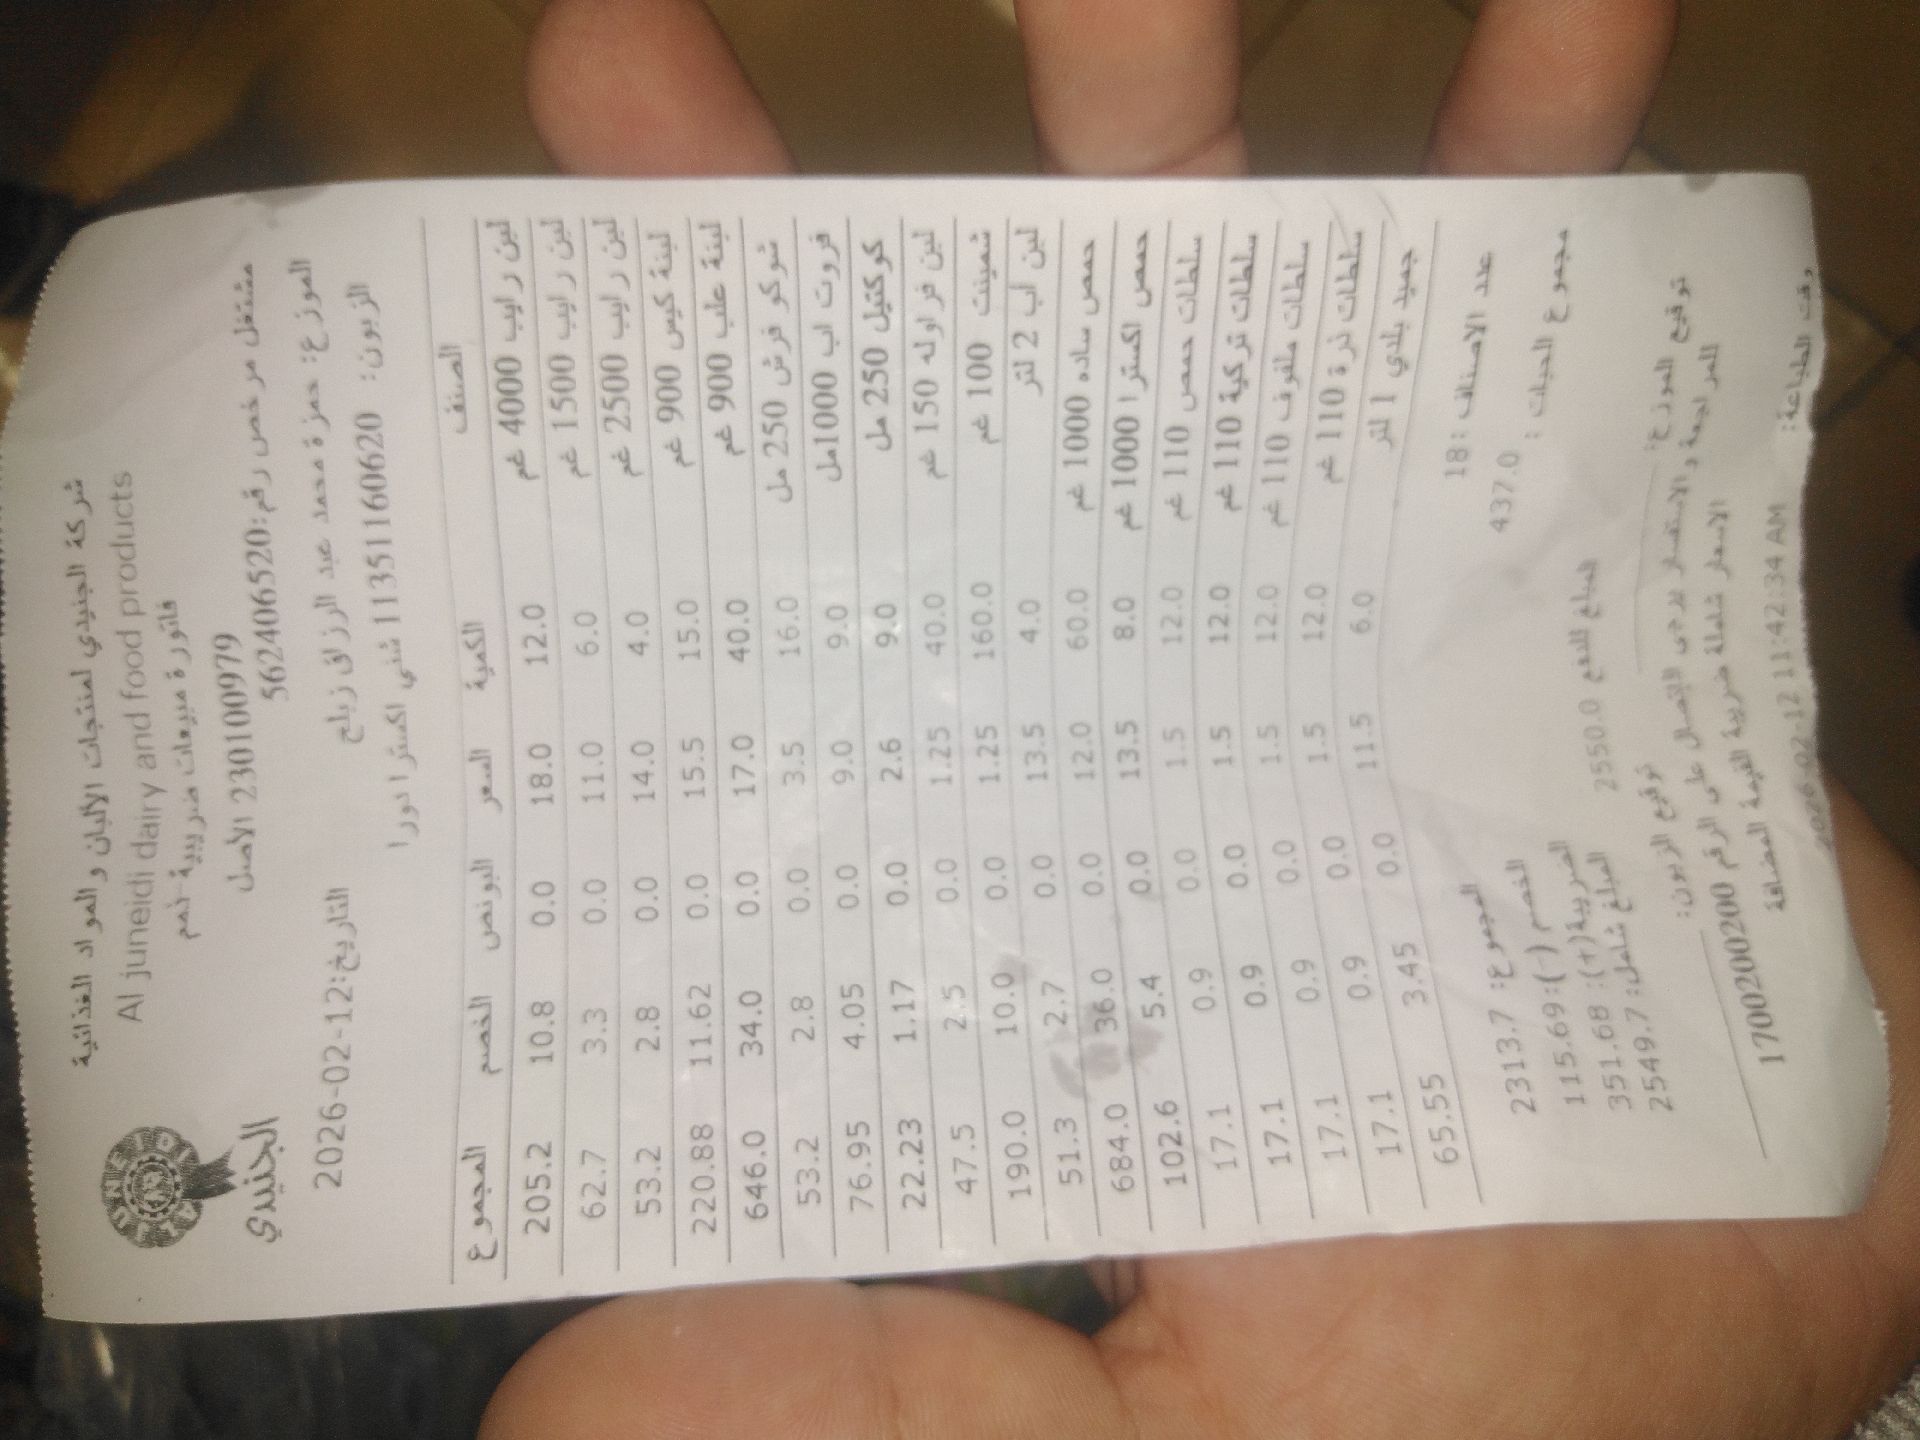 شركة الجنيدي لمنتجات الألبان والمواد الغذائية
Al juneidi dairy and food products
فاتورة مبيعات ضريبية -نعم
الجنيدي
230100979 الأصل
مشتغل مرخص رقم:562406520
الموزع: حمزة محمد عبد الرزاق زبلح
التاريخ:2026-02-12
الزبون: 11351160620 شني اكسترا دورا
الصنف الكمية السعر البونص الخصم المجموع
لبن رايب 4000 غم 12.0 18.0 0.0 10.8 205.2
لبن رايب 1500 غم 6.0 11.0 0.0 3.3 62.7
لبن رايب 2500 غم 4.0 14.0 0.0 2.8 53.2
لبنة كيس 900 غم 15.0 15.5 0.0 11.62 220.88
لبنة علب 900 غم 40.0 17.0 0.0 34.0 646.0
شوكو فرش 250 مل 16.0 3.5 0.0 2.8 53.2
فروت اب 1000مل 9.0 9.0 0.0 4.05 76.95
كوكتيل 250 مل 9.0 2.6 0.0 1.17 22.23
لبن فراوله 150 غم 40.0 1.25 0.0 2.5 47.5
شمينت 100 غم 160.0 1.25 0.0 10.0 190.0
لبن اب 2 لتر 4.0 13.5 0.0 2.7 51.3
حمص ساده 1000 غم 60.0 12.0 0.0 36.0 684.0
حمص اكسترا 1000 غم 8.0 13.5 0.0 5.4 102.6
سلطات حمص 110 غم 12.0 1.5 0.0 0.9 17.1
سلطات تركية 110 غم 12.0 1.5 0.0 0.9 17.1
سلطات ملفوف 110 غم 12.0 1.5 0.0 0.9 17.1
سلطات ذرة 110 غم 12.0 1.5 0.0 0.9 17.1
جميد بلدي 1 لتر 6.0 11.5 0.0 3.45 65.55
عدد الاصناف :18
المجموع: 2313.7
مجموع الحبات : 437.0
الخصم (-):115.69
الضريبة(+): 351.68
المبلغ للدفع 2550.0
المبلغ شامل: 2549.7
توقيع الموزع:
توقيع الزبون:
للمراجعة والاستفسار يرجى الاتصال على الرقم 1700200200
الاسعار شاملة ضريبة القيمة المضافة
وقت الطباعة: 2026-02-12 11:42:34 AM